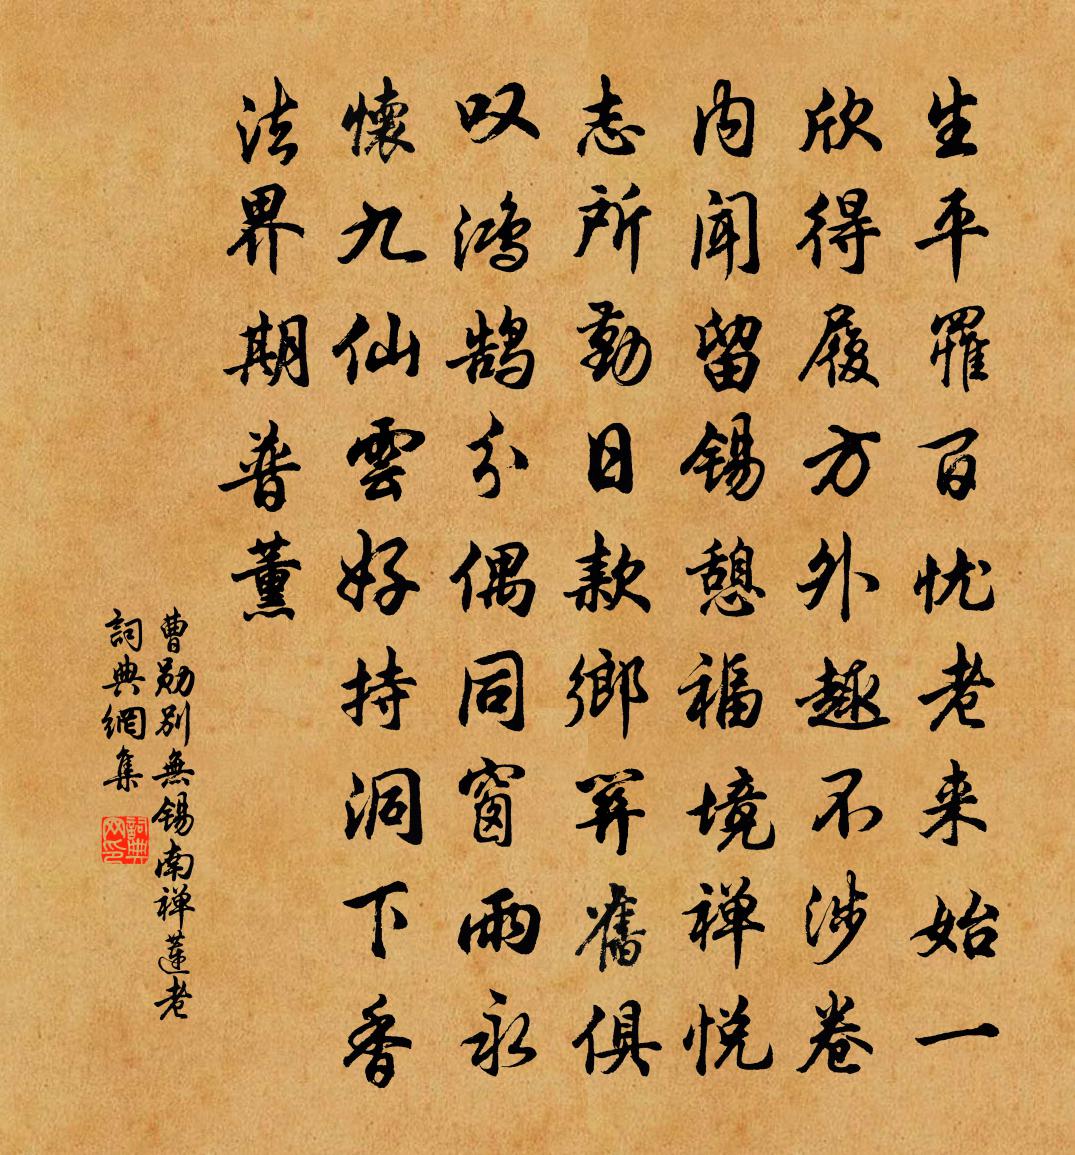 生平罹百忧老来始一
欣得履方外趣不涉卷
内闻留锡憩福境禅悦
志所勤日款鄉舊俱
叹鸿鹄分偶同窗雨永
懷九仙雲好持洞下香
法界期普薰
曹勋别無锡南禅蓮老
詞典網集
詞典网印